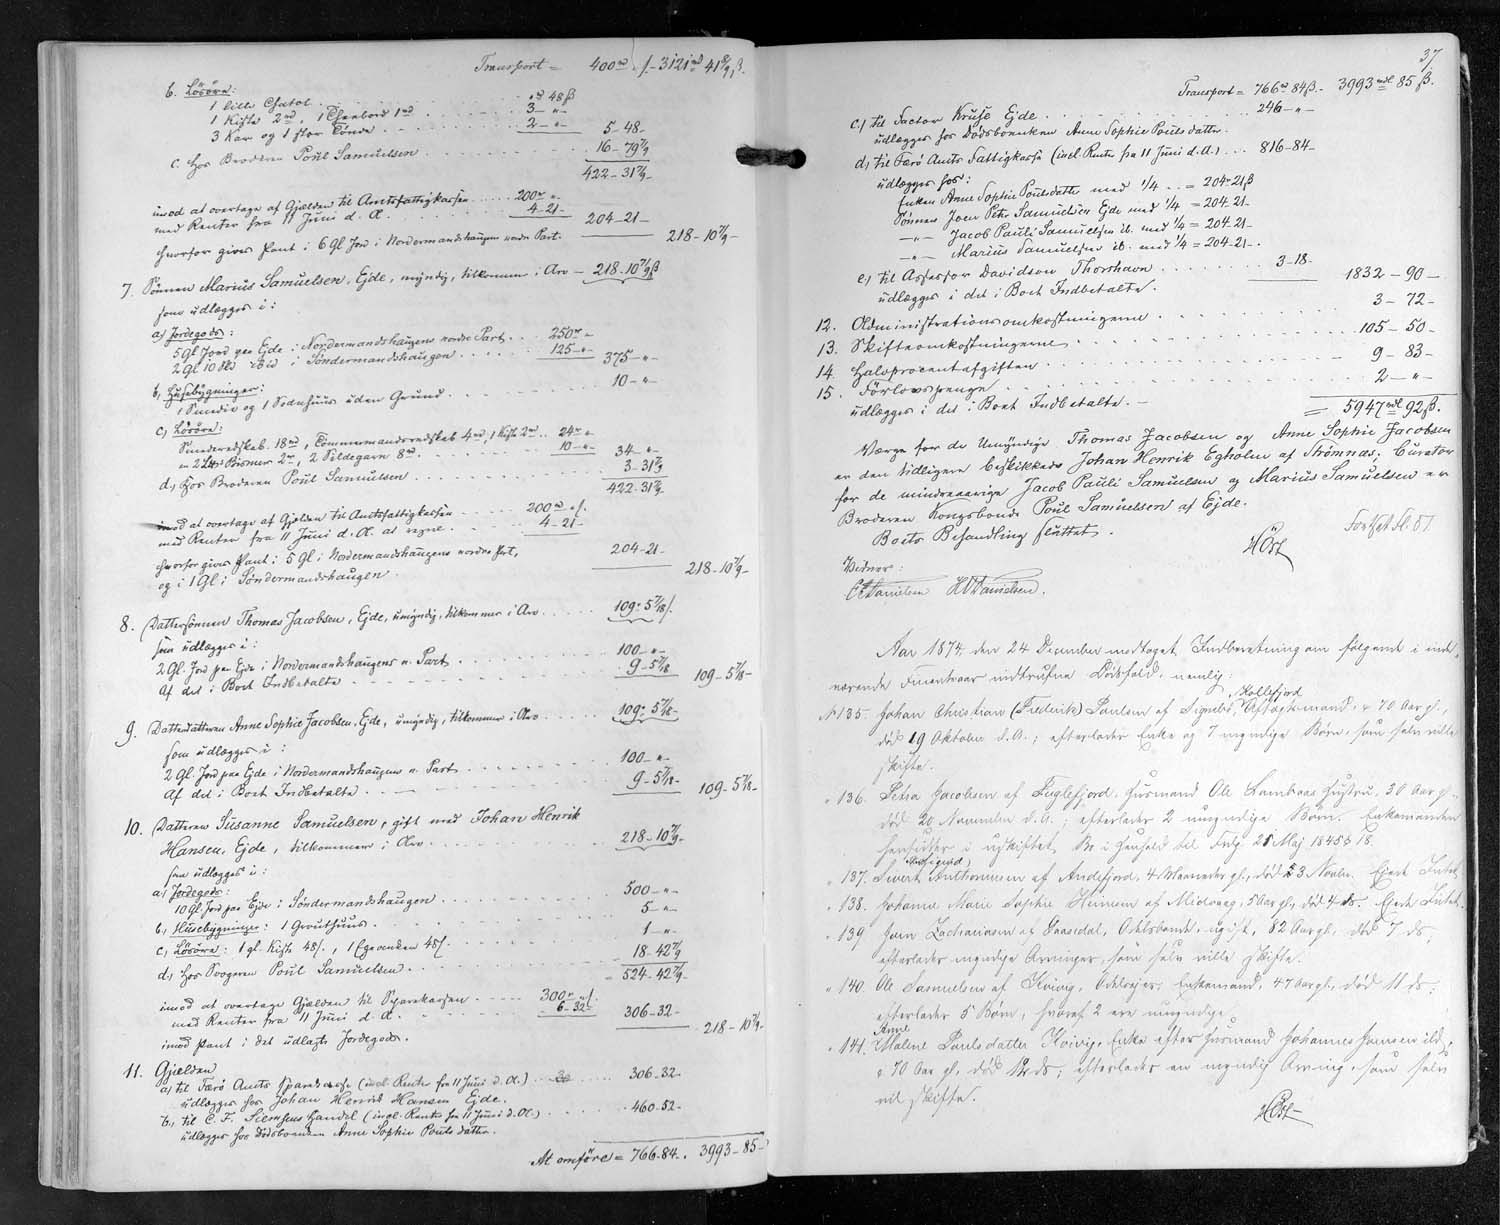 Transport = 400 rd „ f. - 3121 rd 41 8/9 ß.
b. Lösöre:
1 lille Chatol . . . „ rd 48 ß
1 Kiste 2 rd, 1 Theebord 1 rd . . . 3 - „ -
3 Kar og 1 stor Tönde . . . 2 - „ - 5 - 48 -
c. hos Broderen Poul Samuelsen . . . 16 - 79 7/9
422 - 31 7/9 -
imod at overtage af Gjælden til Amtsfattigkassen . . . 200 rd „ -
med Renter fra 11 Juni d. A. . . . 4 - 21 - 204 - 21 -
hvorfor gives Pant i 6 Gl Jord i Nordermandshaugen nordre Part. 218 - 10 7/9 -
7. Sönnen Marius Samuelsen, Ejde, myndig, tilkommer i Arv - 218 - 10 7/9 ß
som udlægges i:
a) Jordegods:
5 Gl Jord paa Ejde i Nordermandshaugens nordre Part . . 250 rd „ -
2 Gl 10 Skd ibid i Söndermandshaugen . . . 125 - „ - 375 - „ -
b, Husebygninger:
1 Smedie og 1 Sodnhuus uden Grund . . . 10 - „ -
c, Lösöre:
Smederedskab 18 rd, Tömmermandsredskab 4 rd, 1 Kiste 2 rd . . 24 rd „
en 2 Bismer 2 rd, 2 Sildegarn 8 rd . . . 10 - „ - 34 - „ -
d, hos Broderen Poul Samuelsen . . . 3 - 31 7/9
422 - 31 7/9
imod at overtage af Gjælden til Amtsfattigkassen . . . 200 rd „ f.
med Renter fra 11 Juni d. A. at regne . . . 4 - 21 - 204 - 21 -
hvorfor gives Pant i 5 Gl i Nordermandshaugens nordre Part,
og i 1 Gl i Söndermandshaugen. 218 - 10 7/9 -
8. Dattersönnen Thomas Jacobsen, Ejde, umyndig, tilkommer i Arv . . . 109 - 5 7/18 f.
som udlægges i:
2 Gl. Jord paa Ejde i Nordermandshaugens n. Part . . . 100 - „ -
Af det i Boet Indbetalte . . . 9 - 5 7/18 109 - 5 7/18 -
9. Datterdatteren Anne Sophie Jacobsen, Ejde, umyndig, tilkommer i Arv . . . 109 - 5 7/18 -
som udlægges i:
2 Gl Jord paa Ejde i Nordermandshaugens n. Part . . . 100 - „ -
Af det i Boet Indbetalte . . . 9 - 5 7/18 - 109 - 5 7/18 -
10. Datteren Susanne Samuelsen, gift med Johan Henrik
Hansen, Ejde, tilkommer i Arv . . . 218 - 10 7/9 -
som udlægges i:
a) Jordegods:
10 Gl Jord paa Ejde i Söndermandshaugen . . . 500 - „ -
b, Husebygninger: 1 Grouthuus . . . 5 - „ -
c, Lösöre: 1 gl. Kiste 48 f., 1 Egeanker 48 f. . . . 1 - „ -
d, hos Svogeren Poul Samuelsen . . . 18 - 42 7/9
524 - 42 7/9 -
imod at overtage Gjælden til Sparekassen . . . 300 rd „ f.
med Renter fra 11 Juni d. A. . . . 6 - 32 - 306 - 32 -
imod Pant i det udlagte Jordegods. 218 - 10 7/9 -
11. Gjælden
a) til Færö Amts Sparekasse (incl. Renter fra 11 Juni d. A.) . . . 306 - 32 -
udlægges hos Johan Henrik Hansen Ejde.
b, til C. F. Siemsens Handel (incl. Renter fra 11 Juni d. A.) . . . 460 - 52 -
udlægges hos Dödsboenken Anne Sophie Pouls datter.
At omföre = 766 - 84. 3993 - 85 -
37
Transport = 766 rd 84 ß. - 3993 rdl 85 ß.
c.) til Factor Kruse Ejde . . . 246 - „ -
udlægges hos Dödsboenken Anne Sophie Poulsdatter.
d, til Færö Amts Fattigkasse (incl. Renter fra 11 Juni d. A.) . . . 816 - 84 -
udlægges hos:
Enken Anne Sophie Poulsdatter med 1/4 . . = 204 - 21 ß
Sönnen Joen Petr Samuelsen Ejde med 1/4 = 204 - 21 -
-„- Jacob Pauli Samuelsen ib. med 1/4 = 204 - 21 -
-„- Marius Samuelsen ib. med 1/4 = 204 - 21 - .
e, til Assessor Davidson Thorshavn . . . 3 - 18 -
udlægges i det i Boet Indbetalte. 1832 - 90 -
12. Administrationsomkostningerne . . . 3 - 72 -
13. Skifteomkostningerne . . . 105 - 50 -
14. Halvprocentafgiften . . . 9 - 83 -
15. Förlovspenge . . . 2 - „ -
udlægges i det i Boet Indbetalte. -
= 5947 rdl 92 ß.
Værge for de Umyndige Thomas Jacobsen og Anne Sophie Jacobsen
er den tidligere beskikkede Johan Henrik Egholm af Strömnæs; Curator
for de mindreaarige Jacob Pauli Samuelsen og Marius Samuelsen er
Broderen Kongsbonde Poul Samuelsen af Ejde.
Boets Behandling sluttet.
Fortsat fl. 51
HOst
Vidner:
C Danielsen HDanielsen.
Aar 1874 den 24 December modtoges Indberetning om følgende i inde-
værende Fjerdingaar indtrufne Dødsfald, nemlig:
Kollefjord
№ 135. Johan Christian (Frederik) Paulsen af Signebö, Aftægtsmand, 70 Aar gl.,
død 19 Oktober d. A.; efterlader Enke og 7 myndige Børn, som selv ville
skifte.
„ 136. Petra Jacobsen af Fuglefjord, Husmand Ole Lambaas Hustru, 30 Aar gl.
død 20 November d. A.; efterlader 2 umyndige Børn. Enkemanden
hensidder i uskiftet Bo i Henhold til Frdg. 21 Maj 1845 § 18.
„ 137. Sivert Anthoniussen af Andefjord, 4 Maaneder gl., død 23 Novbr. Ejede Intet.
„ 138. Johanne Marie Sophie Hennen af Midvaag, 5 Aar gl., død 4 ds. Ejede Intet.
„ 139 Joen Zachariasen af Gaasedal, Odelsbonde, ugift, 82 Aar gl., død 7 ds.,
efterlader myndige Arvinger, som selv ville skifte.
„ 140. Ole Samuelsen af Kvivig, Odelsejer, Enkemand, 47 Aar gl., død 11 ds;
efterlader 5 Børn, hvoraf 2 ere umyndige.
Anne
„ 141. Malene Poulsdatter Kvivig, Enke efter Husmand Johannes Jensen ibd.,
70 Aar gl, død 12 ds; efterlader en myndig Arving, som selv
vil skifte.
HOst